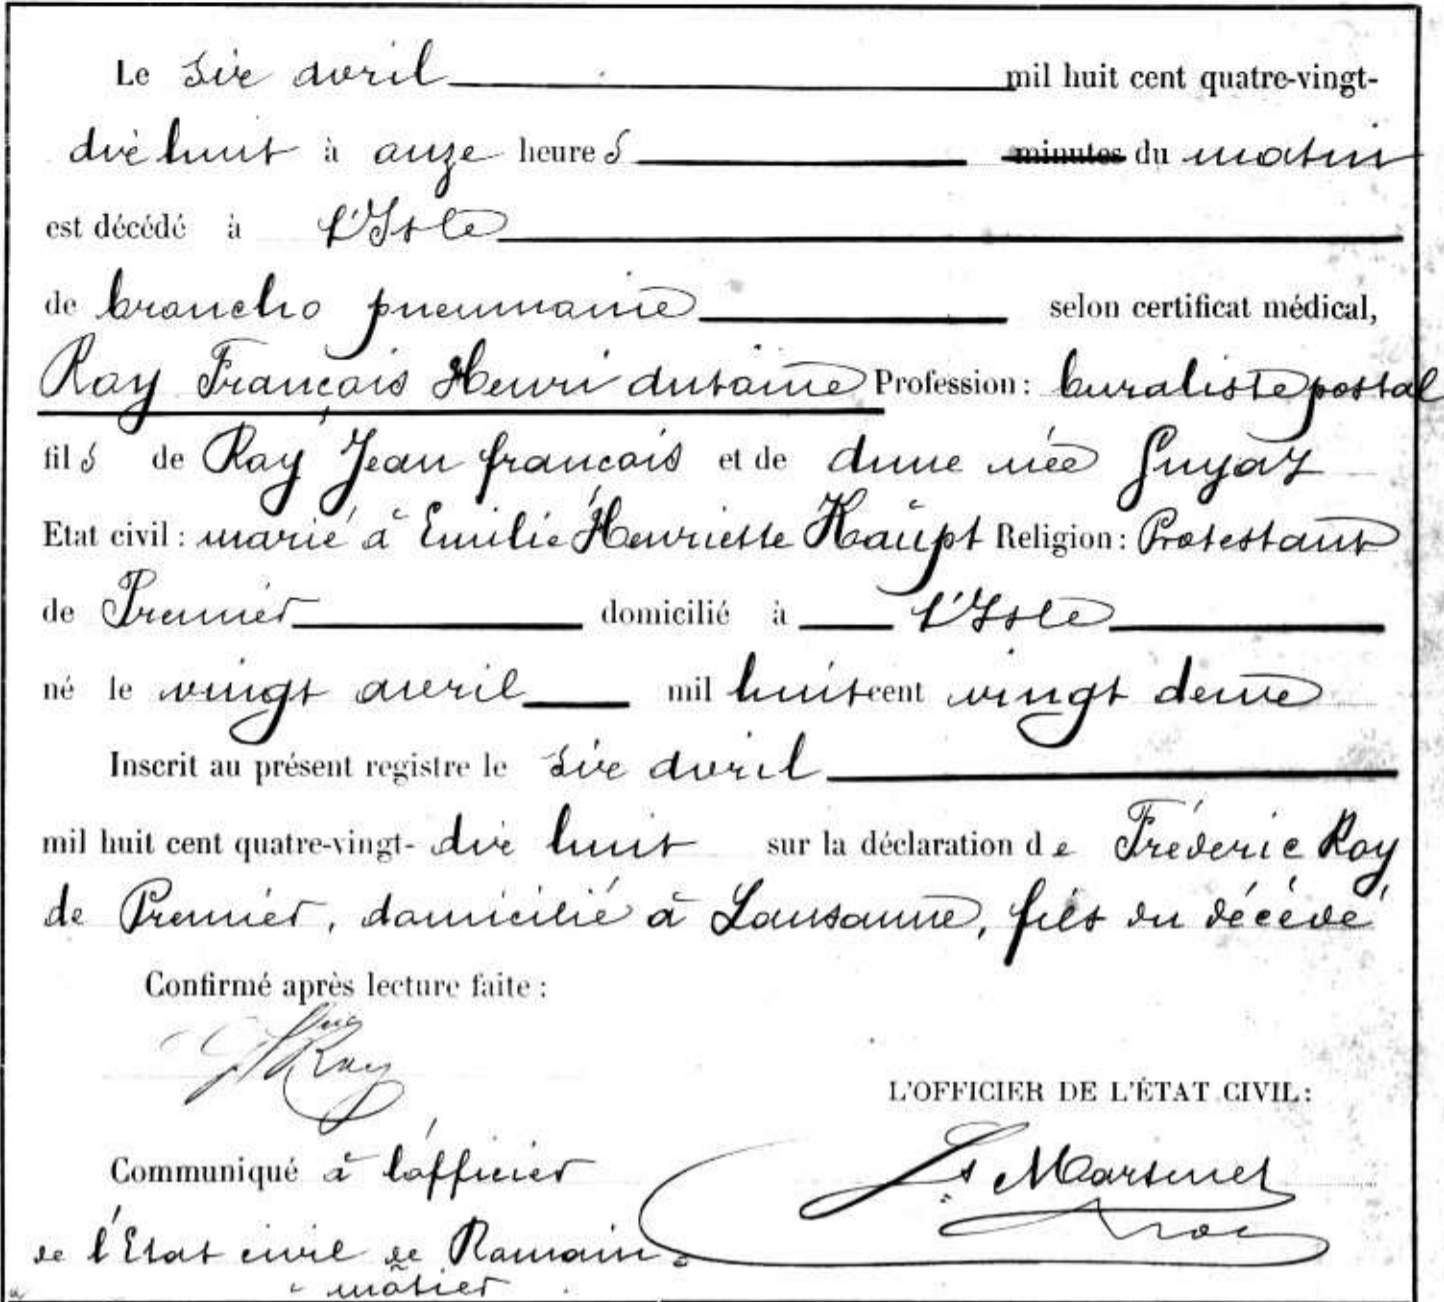 Le six avril mil huit cent quatre-vingt-
dix huit à onze heures minutes du matin
est décédé à L'Isle
de broncho pneumonie selon certificat médical,
Roy François Henri Antoine Profession: buraliste postal
fils de Roy Jean françois et de Anne née Guyaz
Etat civil: marié à Emilie Henriette Haupt Religion: Protestant
de Premier domicilié à L'Isle
né le vingt avril mil huit cent vingt deux
Inscrit au présent registre le six avril
mil huit cent quatre-vingt- dix huit sur la déclaration de Fréderic Roy
de Premier, domicilié à Lausanne, fils du décédé
Confirmé après lecture faite:
Roy
L'OFFICIER DE L'ÉTAT CIVIL:
Communiqué à l'officier
Ls Martinet
de l'Etat civil de Romain-
môtier